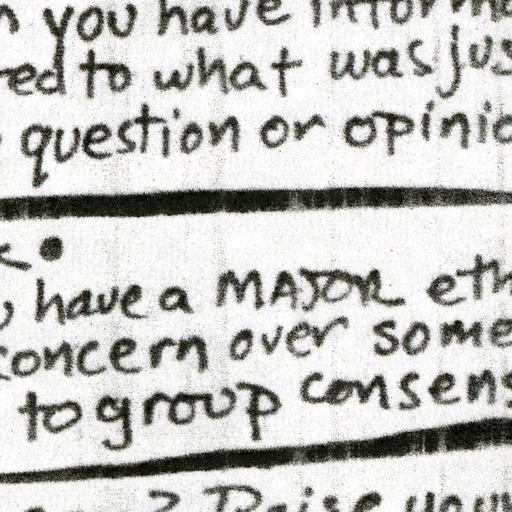 you have inform
red to what was jus
question or opinio
have a MAJOR eth
concern over some
to group consens
? Raise your